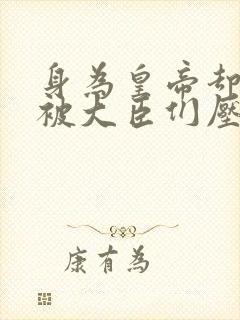 身為皇帝却
被大臣们壓
康有為